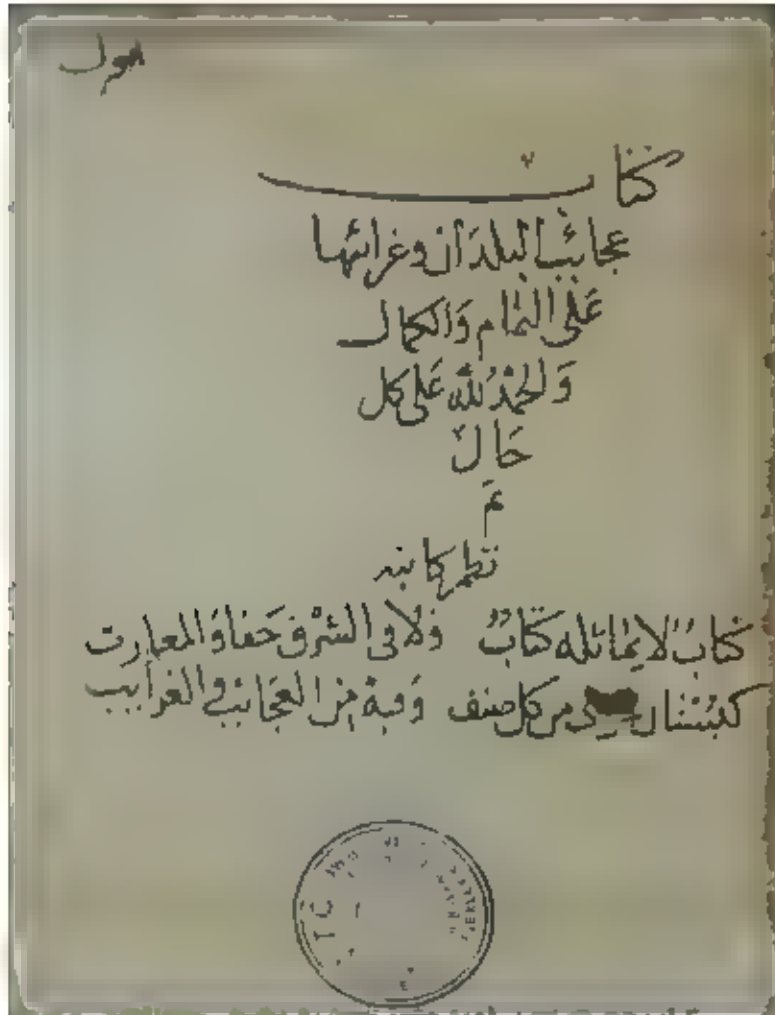 كتاب
عجائب البلدان وغرائبها
على التمام والكمال
والحمد لله على كل
حال
تم
نظم كاتبه
كتاب لا يماثله كتاب ولا فى الشرق حقا والمغارب
كبستان من كل صنف وفيه من العجائب والغرايب